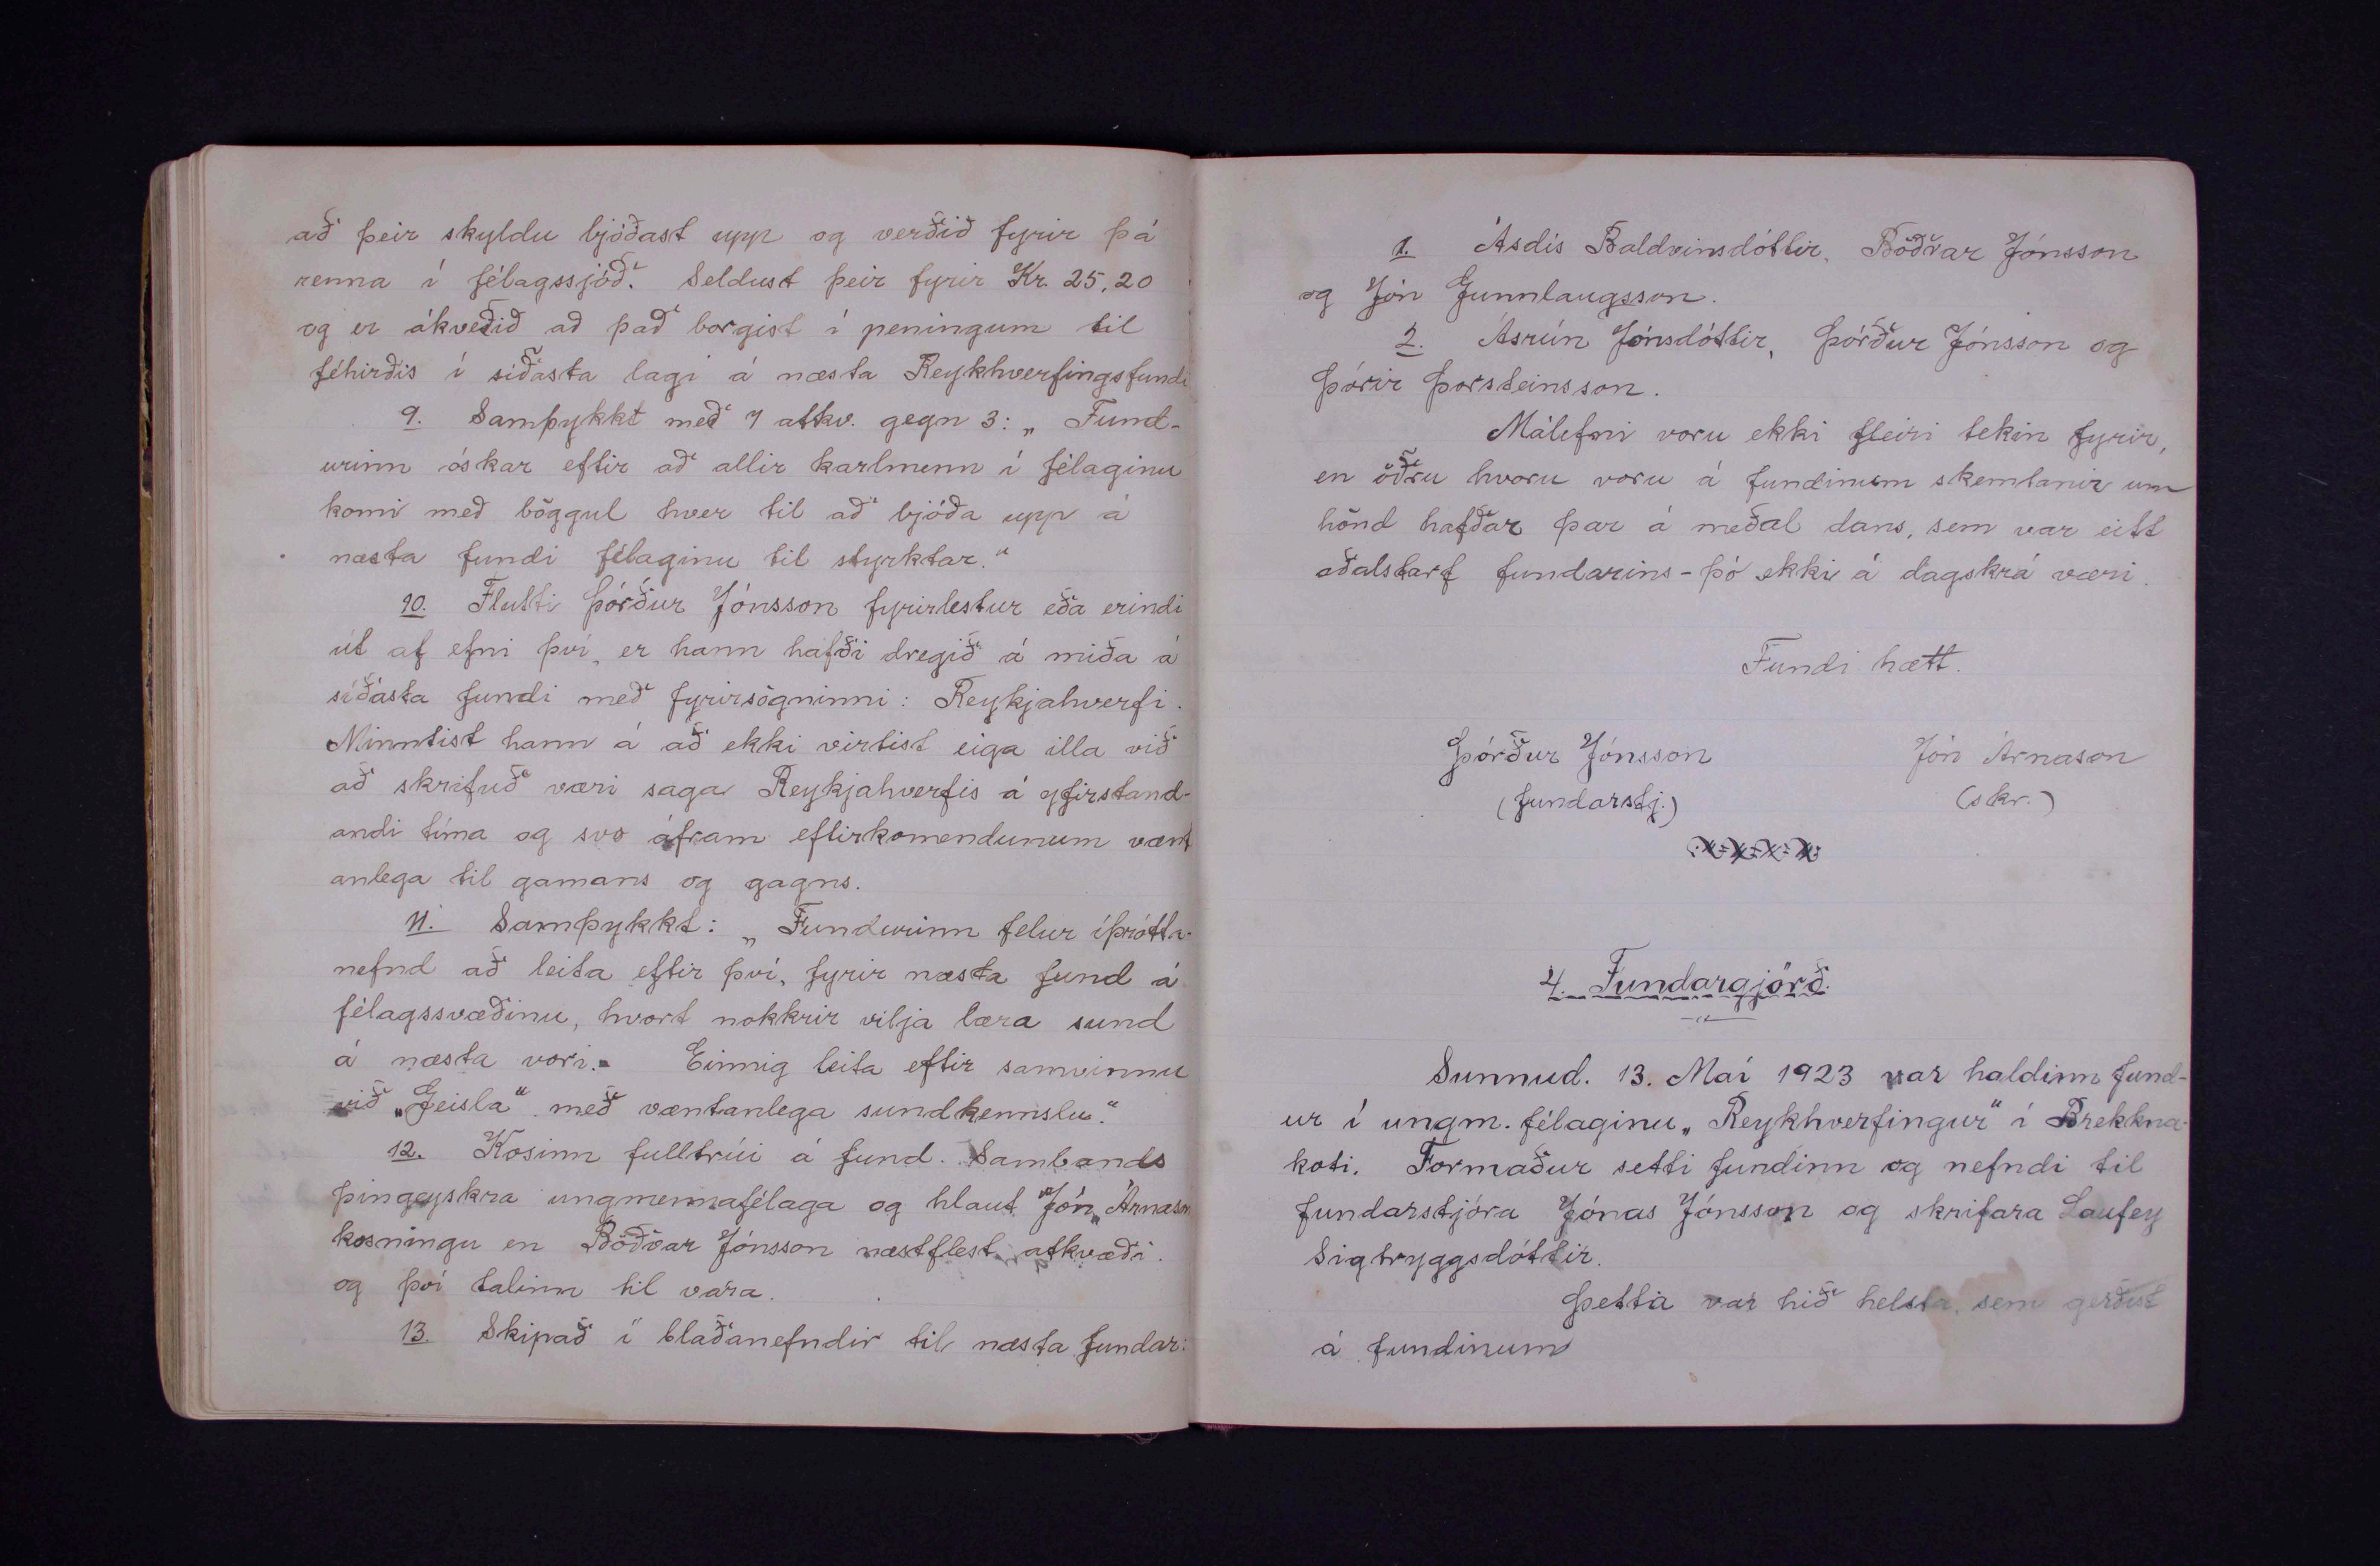 að þeir skyldu bjóðast upp og verðið fyrir þá
renna í félagssjóð. Seldust þeir fyrir Kr. 25,20
og er ákveðið að það borgist í peningum til
féhirðis í síðasta lagi á næsta Reykhverfingsfundi
9. Samþykkt með 7 atkv. gegn 3: „Fund-
urinn óskar eftir að allir karlmenn í félaginu
komi með böggul hver til að bjóða upp á
næsta fundi félaginu til styrktar."
10. Flutti Þórður Jónsson fyrirlestur eða erindi
út af efni því, er hann hafði dregið á miða á
síðasta fundi með fyrirsögninni: Reykjahverfi.
Minntist hann á að ekki virtist eiga illa við
að skrifuð væri saga Reykjahverfis á yfirstand-
andi tíma og svo áfram eftirkomendunum vænt
anlega til gamans og gagns.
11. Samþykkt: „Fundurinn felur íþrótta-
nefnd að leita eftir því, fyrir næsta fund á
félagssvæðinu, hvort nokkrir vilja læra sund
á næsta vori. Einnig leita eftir samvinnu
við „Geisla" með væntanlega sundkennslu."
12. Kosinn fulltrúi á fund. Sambands
þingeyskra ungmennafélaga og hlaut Jón Árnason
kosningu en Böðvar Jónsson næstflest atkvæði.
og því talinn til vara.
13. Skipað í blaðanefndir til næsta fundar:
1. Ásdís Baldvinsdóttir, Böðvar Jónsson
og Jón Gunnlaugsson.
2. Ásrún Jónsdóttir, Þórður Jónsson og
Þórir Þorsteinsson.
Málefni voru ekki fleiri tekin fyrir,
en öðru hvoru voru á fundinum skemtanir um
hönd hafðar þar á meðal dans, sem var eitt
aðalstarf fundarins - þó ekki á dagskrá væri.
Fundi hætt.
Þórður Jónsson Jón Árnason
(fundarstj.) (skr.)
4. Fundargjörð.
Sunnud. 13. Maí 1923 var haldinn fund-
ur í ungm. félaginu „Reykhverfingur" í Brekkna-
koti. Formaður setti fundinn og nefndi til
fundarstjóra Jónas Jónsson og skrifara Laufey
Sigtryggsdóttir.
Þetta var hið helsta, sem gerðist
á fundinum